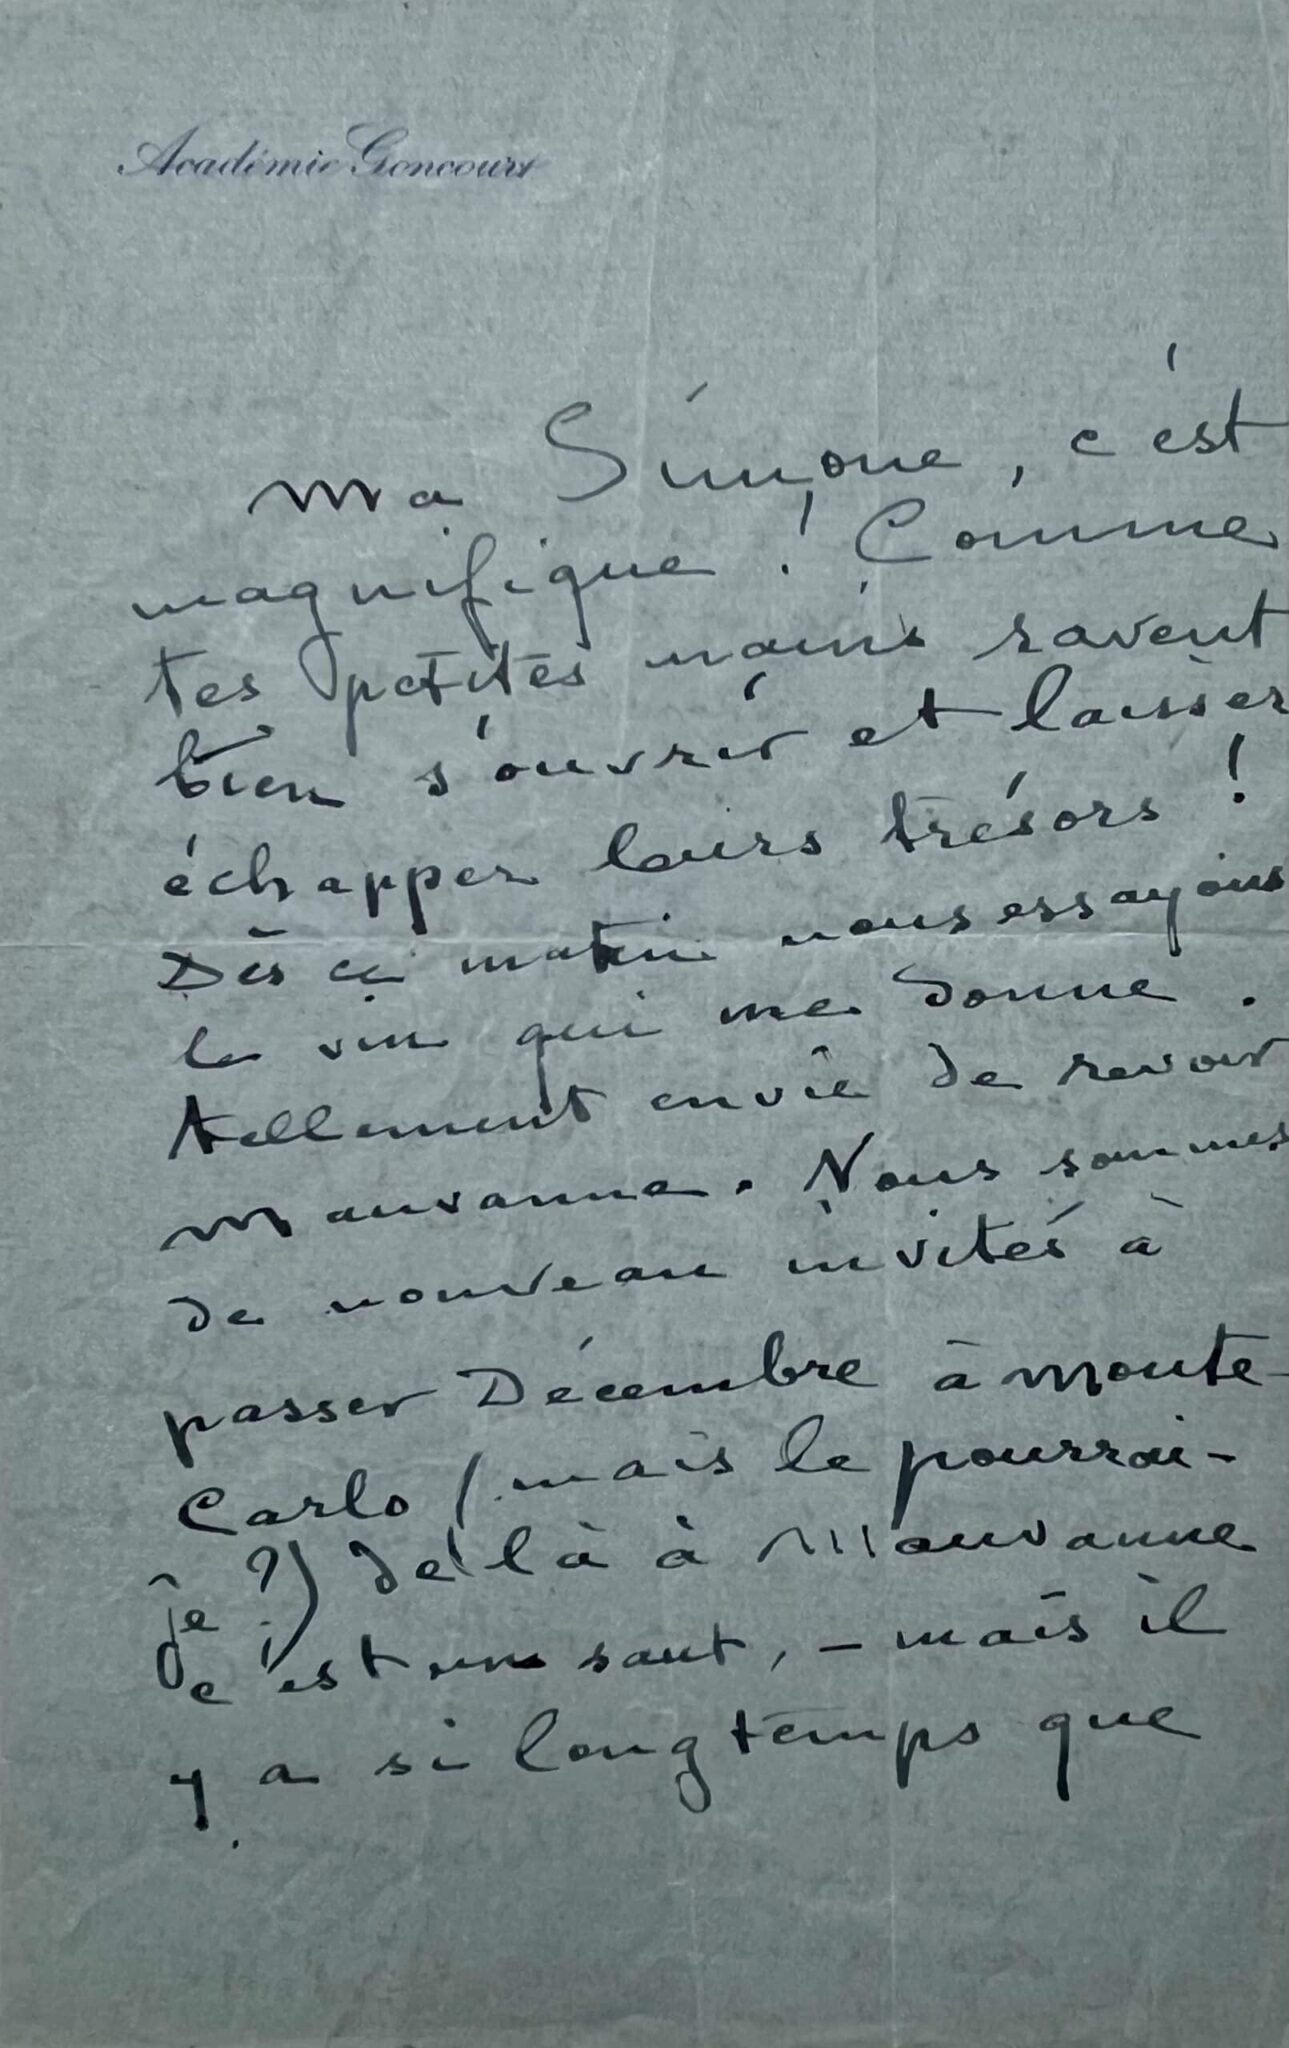 Académie Goncourt
Ma Simone, c'est
magnifique ! Comme
tes petites mains savent
bien s'ouvrir et laisser
échapper leurs trésors !
Dès ce matin nous essayons
le vin qui me donne
tellement envie de revoir
Mauvanne. Nous sommes
de nouveau invités à
passer Décembre à Monte-
Carlo (mais le pourrai-
je ?) De là à Mauvanne
c'est un saut, – mais il
y a si longtemps que